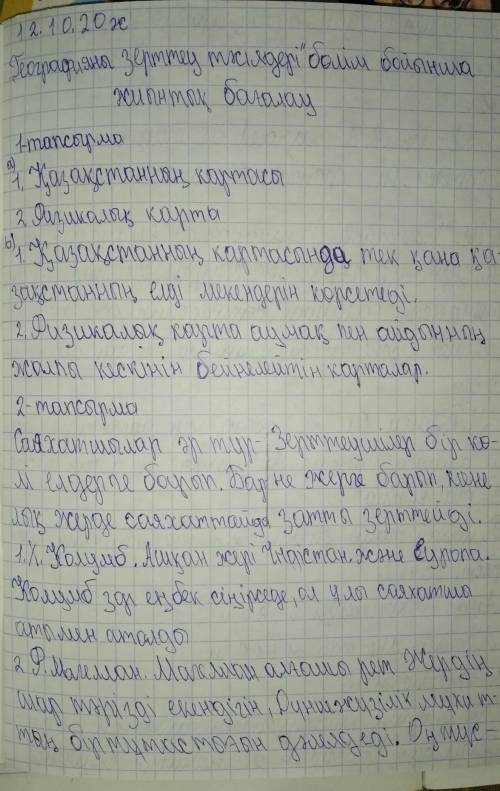 12.10.20ж
"Географияны зерттеу тәсілдері" бөлім бойынша
жиынтық бағалау
1-тапсырма
а)
1. Қазақстанның картасы
2. Физикалық карта
ь)
1. Қазақстанның картасында тек қана қа-
зақстанның елді мекендерін көрсетеді.
2. Физикалық карта аумақ пен айдынның
жалпы кескінін бейнелейтін карталар.
2-тапсырма
Саяхатшылар әр түр- Зерттеушілер бір кө-
лі елдерге барып. Бар не жерге барып, көне
лық жерде саяхаттайды затты зерттейді.
1. Х. Колумб. Ашқан жері Үндістан және Еуропа.
Колумб зор еңбек сіңірседе, ол ұлы саяхатшы
атымен аталды
2. Ф. Магеллан. Магеллан алғашқы рет Жердің
шар тәрізді екендігін, Дүниежүзілік мұхит-
тың біртұтастығын дәлелдеді. Оңтүс-